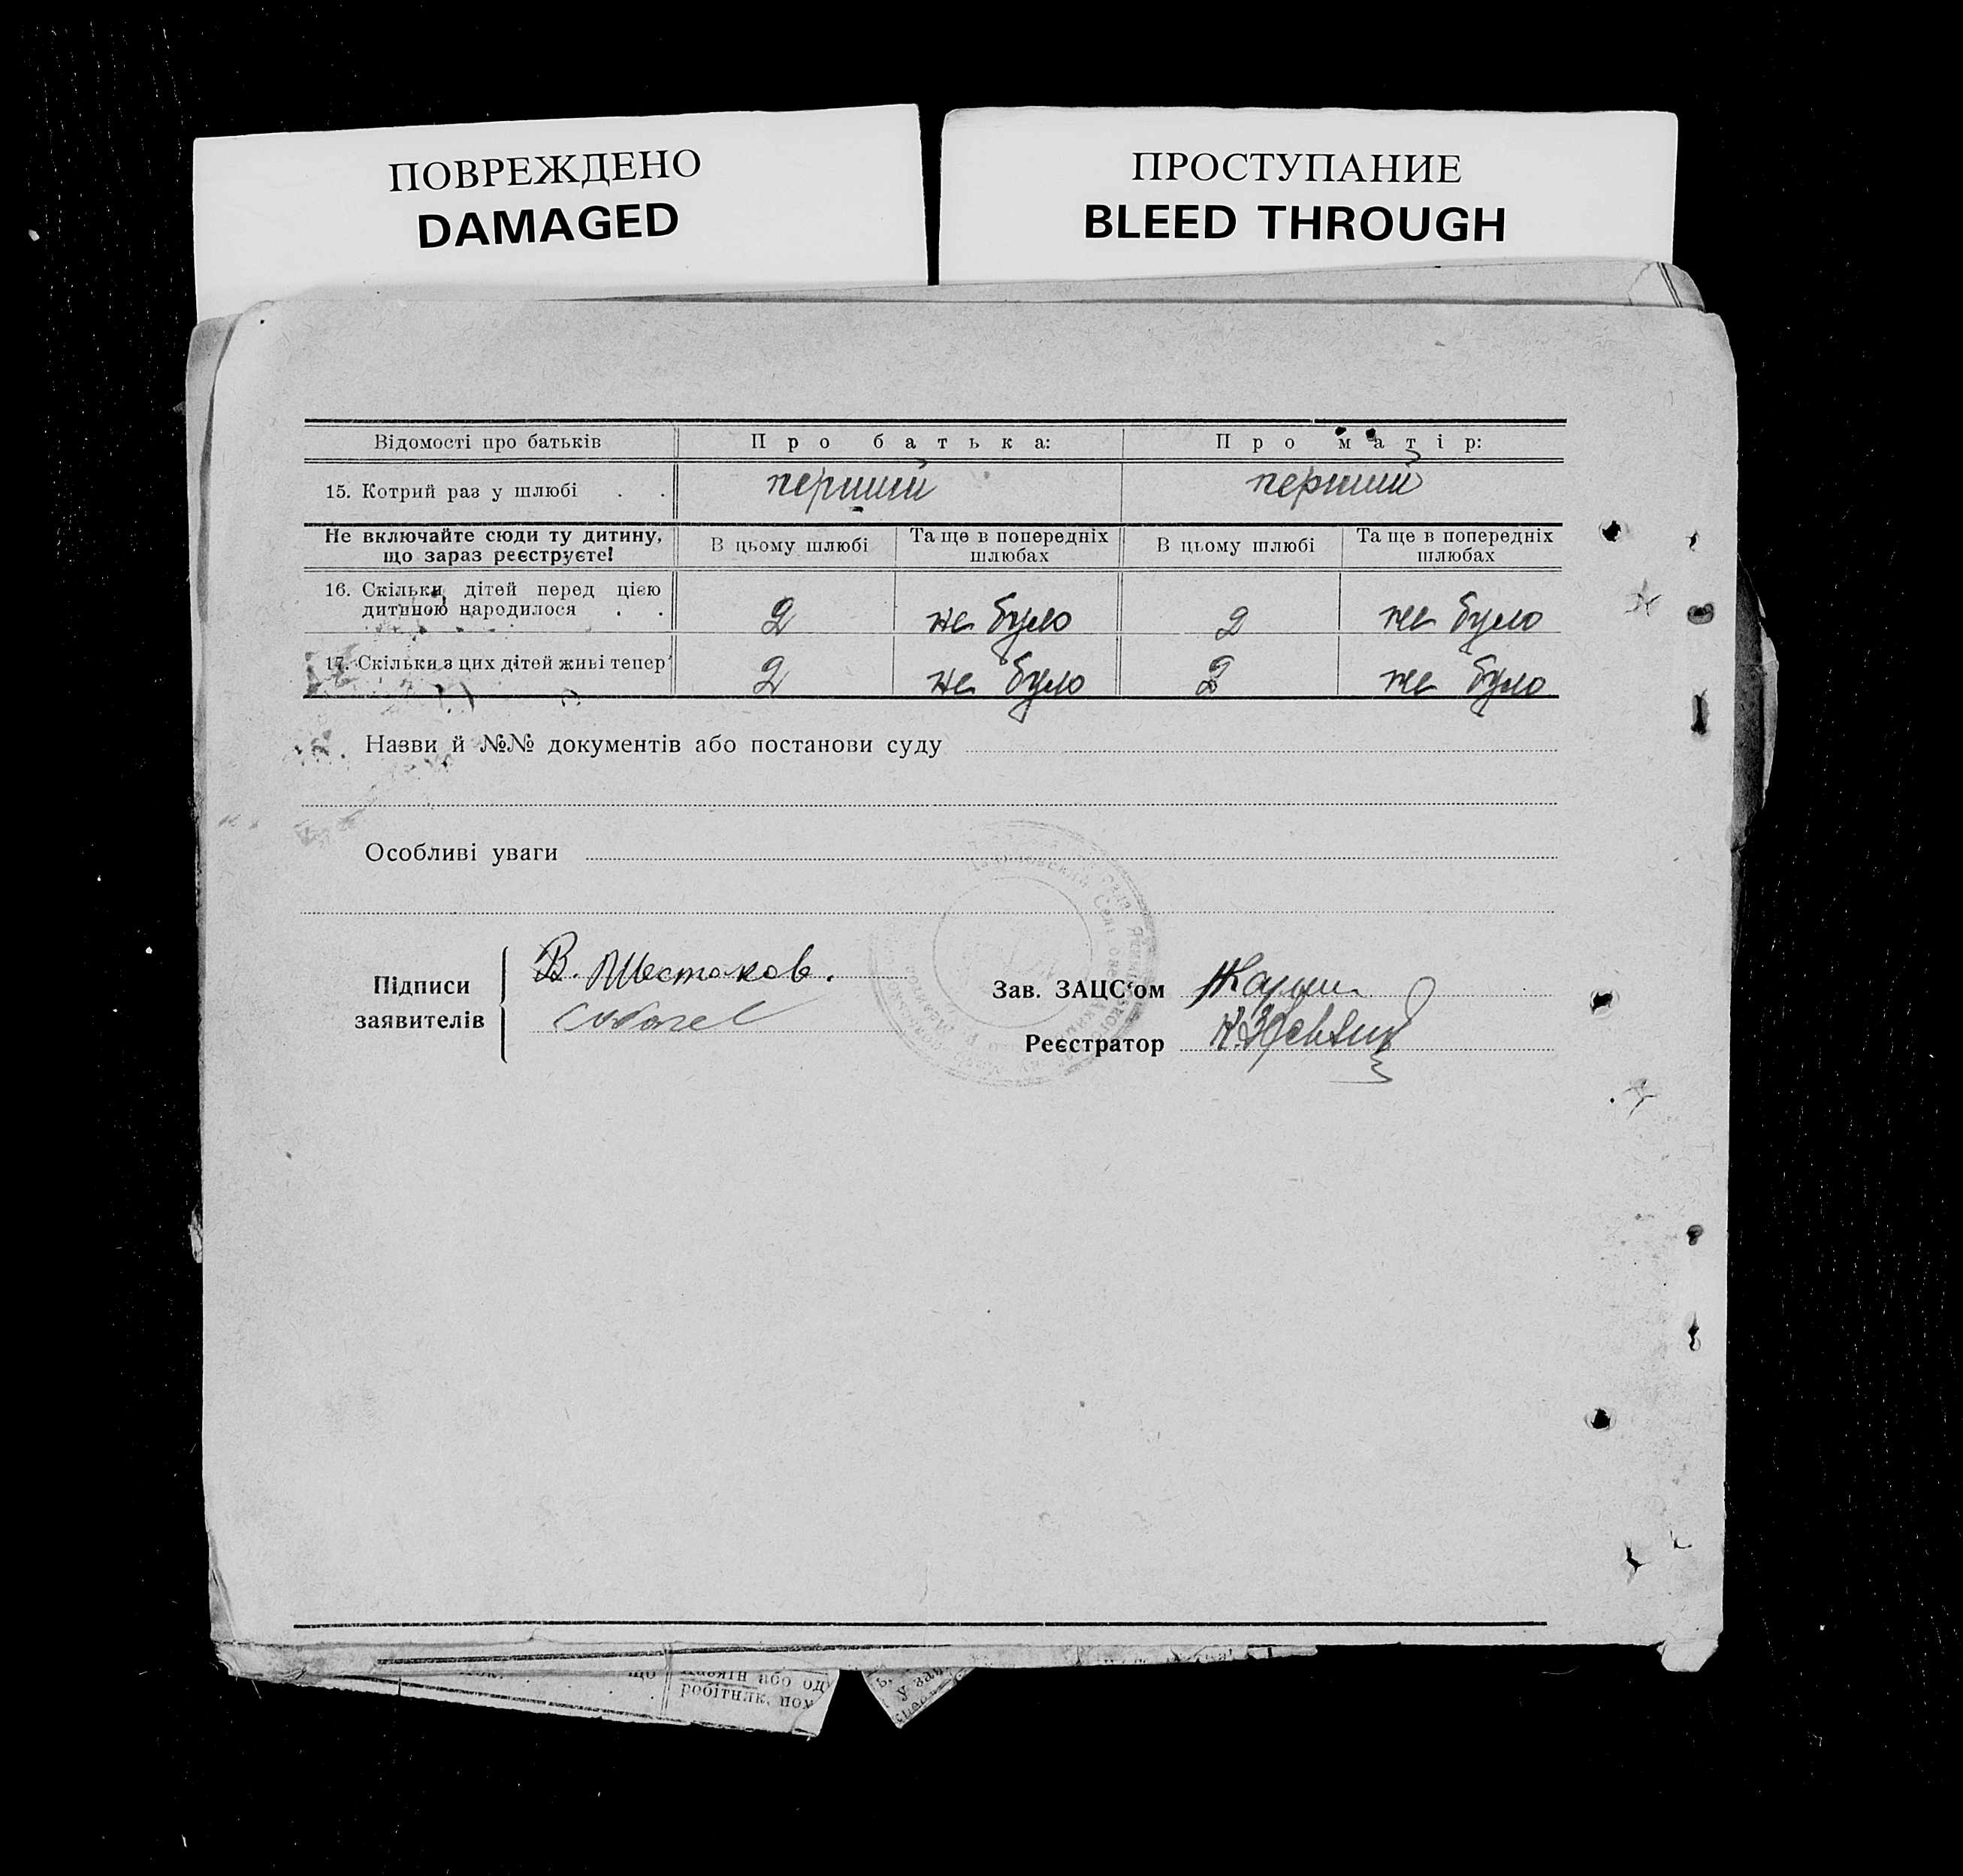 ПОВРЕЖДЕНО
DAMAGED
ПРОСТУПАНИЕ
BLEED THROUGH
Відомості про батьків Про батька: Про матір:
15. Котрий раз у шлюбі . . перший перший
Не включайте сюди ту дитину, що зараз реєструєте! В цьому шлюбі Та ще в попередніх шлюбах В цьому шлюбі Та ще в попередніх шлюбах
16. Скільки дітей перед цією
дитиною народилося . . 2 не було 2 не було
17. Скільки з цих дітей живі тепер 2 не було 2 не було
Назви й №№ документів або постанови суду
Особливі уваги
Підписи заявителів
В. Шестаков.
Зав. ЗАЦС‘ом
Реєстратор
що
або од
робітник, пом
у зам